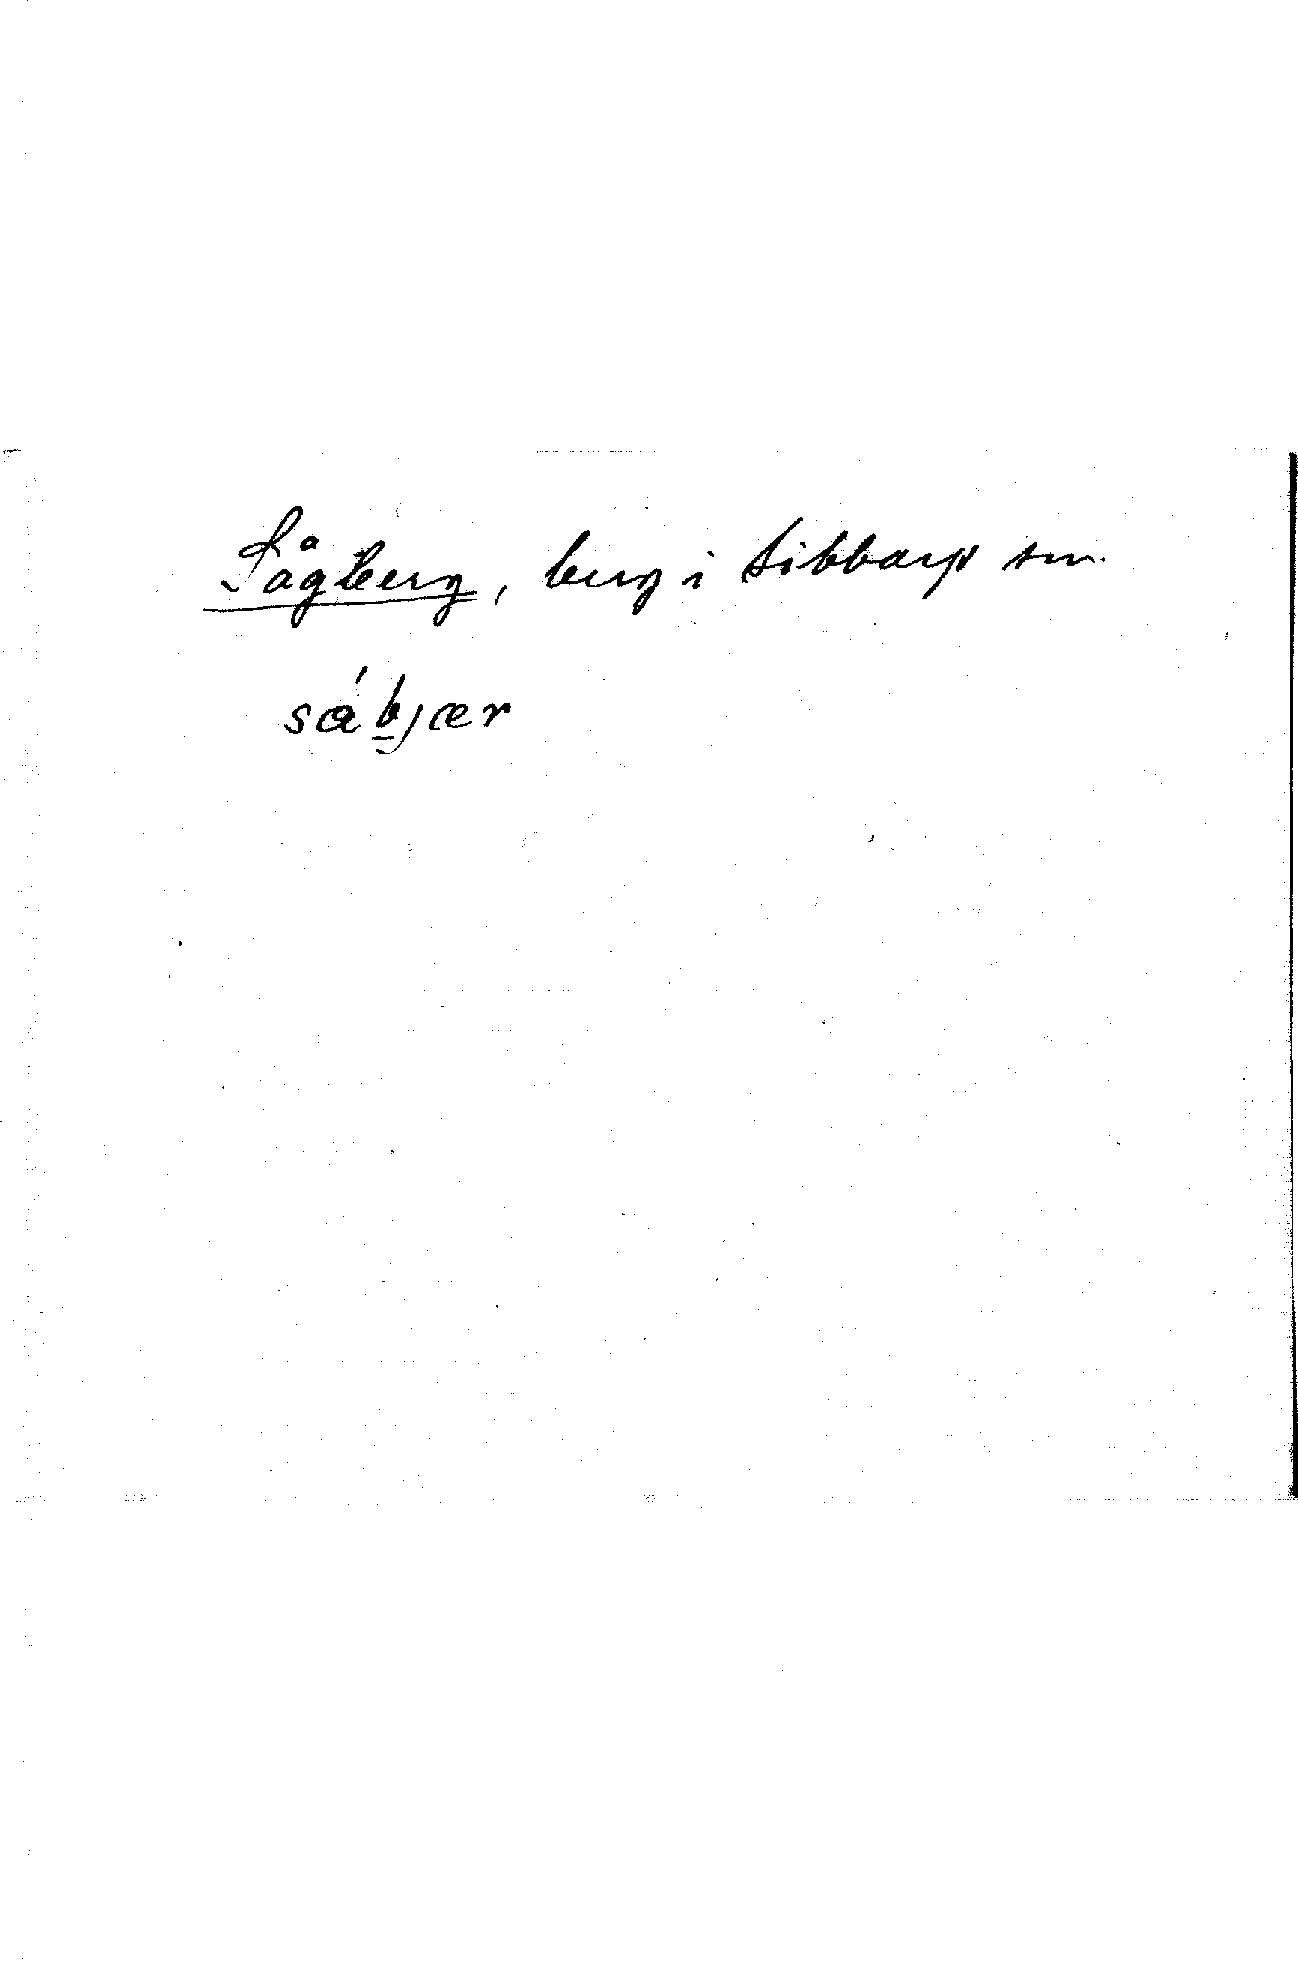 Sågberg, berg i Sibbarp sn.
sábjær